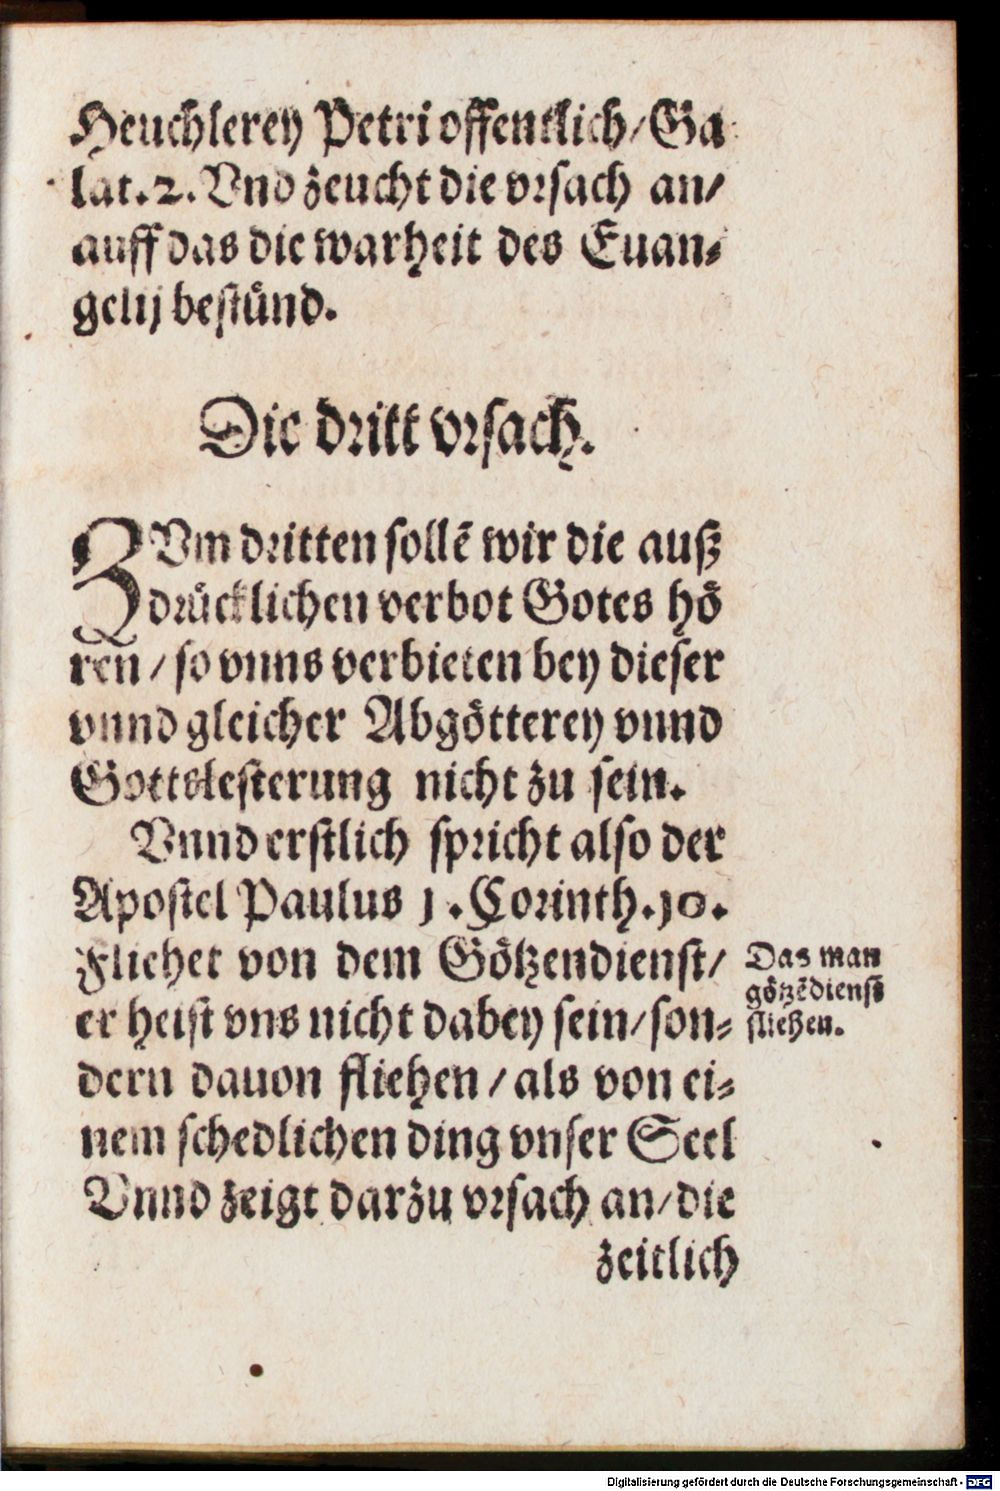 Heuchlerey Petri offentlich/ Ga
lat. 2. Vnd zeucht die vrsach an/
auff das die warheit des Euan-
gelij bestünd.
Die dritt vrsach.
ZVm dritten sollē wir die auß
drücklichen verbot Gotes hö
ren / so vnns verbieten bey dieser
vnnd gleicher Abgötterey vnnd
Gottslesterung nicht zu sein.
Vnnd erstlich spricht also der
Apostel Paulus 1. Corinth. 10.
Fliehet von dem Götzendienst/
er heist vns nicht dabey sein/ son-
dern dauon fliehen / als von ei-
nem schedlichen ding vnser Seel
Vnnd zeigt darzu vrsach an/ die
zeitlich
Das man
götzēdienst
fliehen.
Digitalisierung gefördert durch die Deutsche Forschungsgemeinschaft - DFG